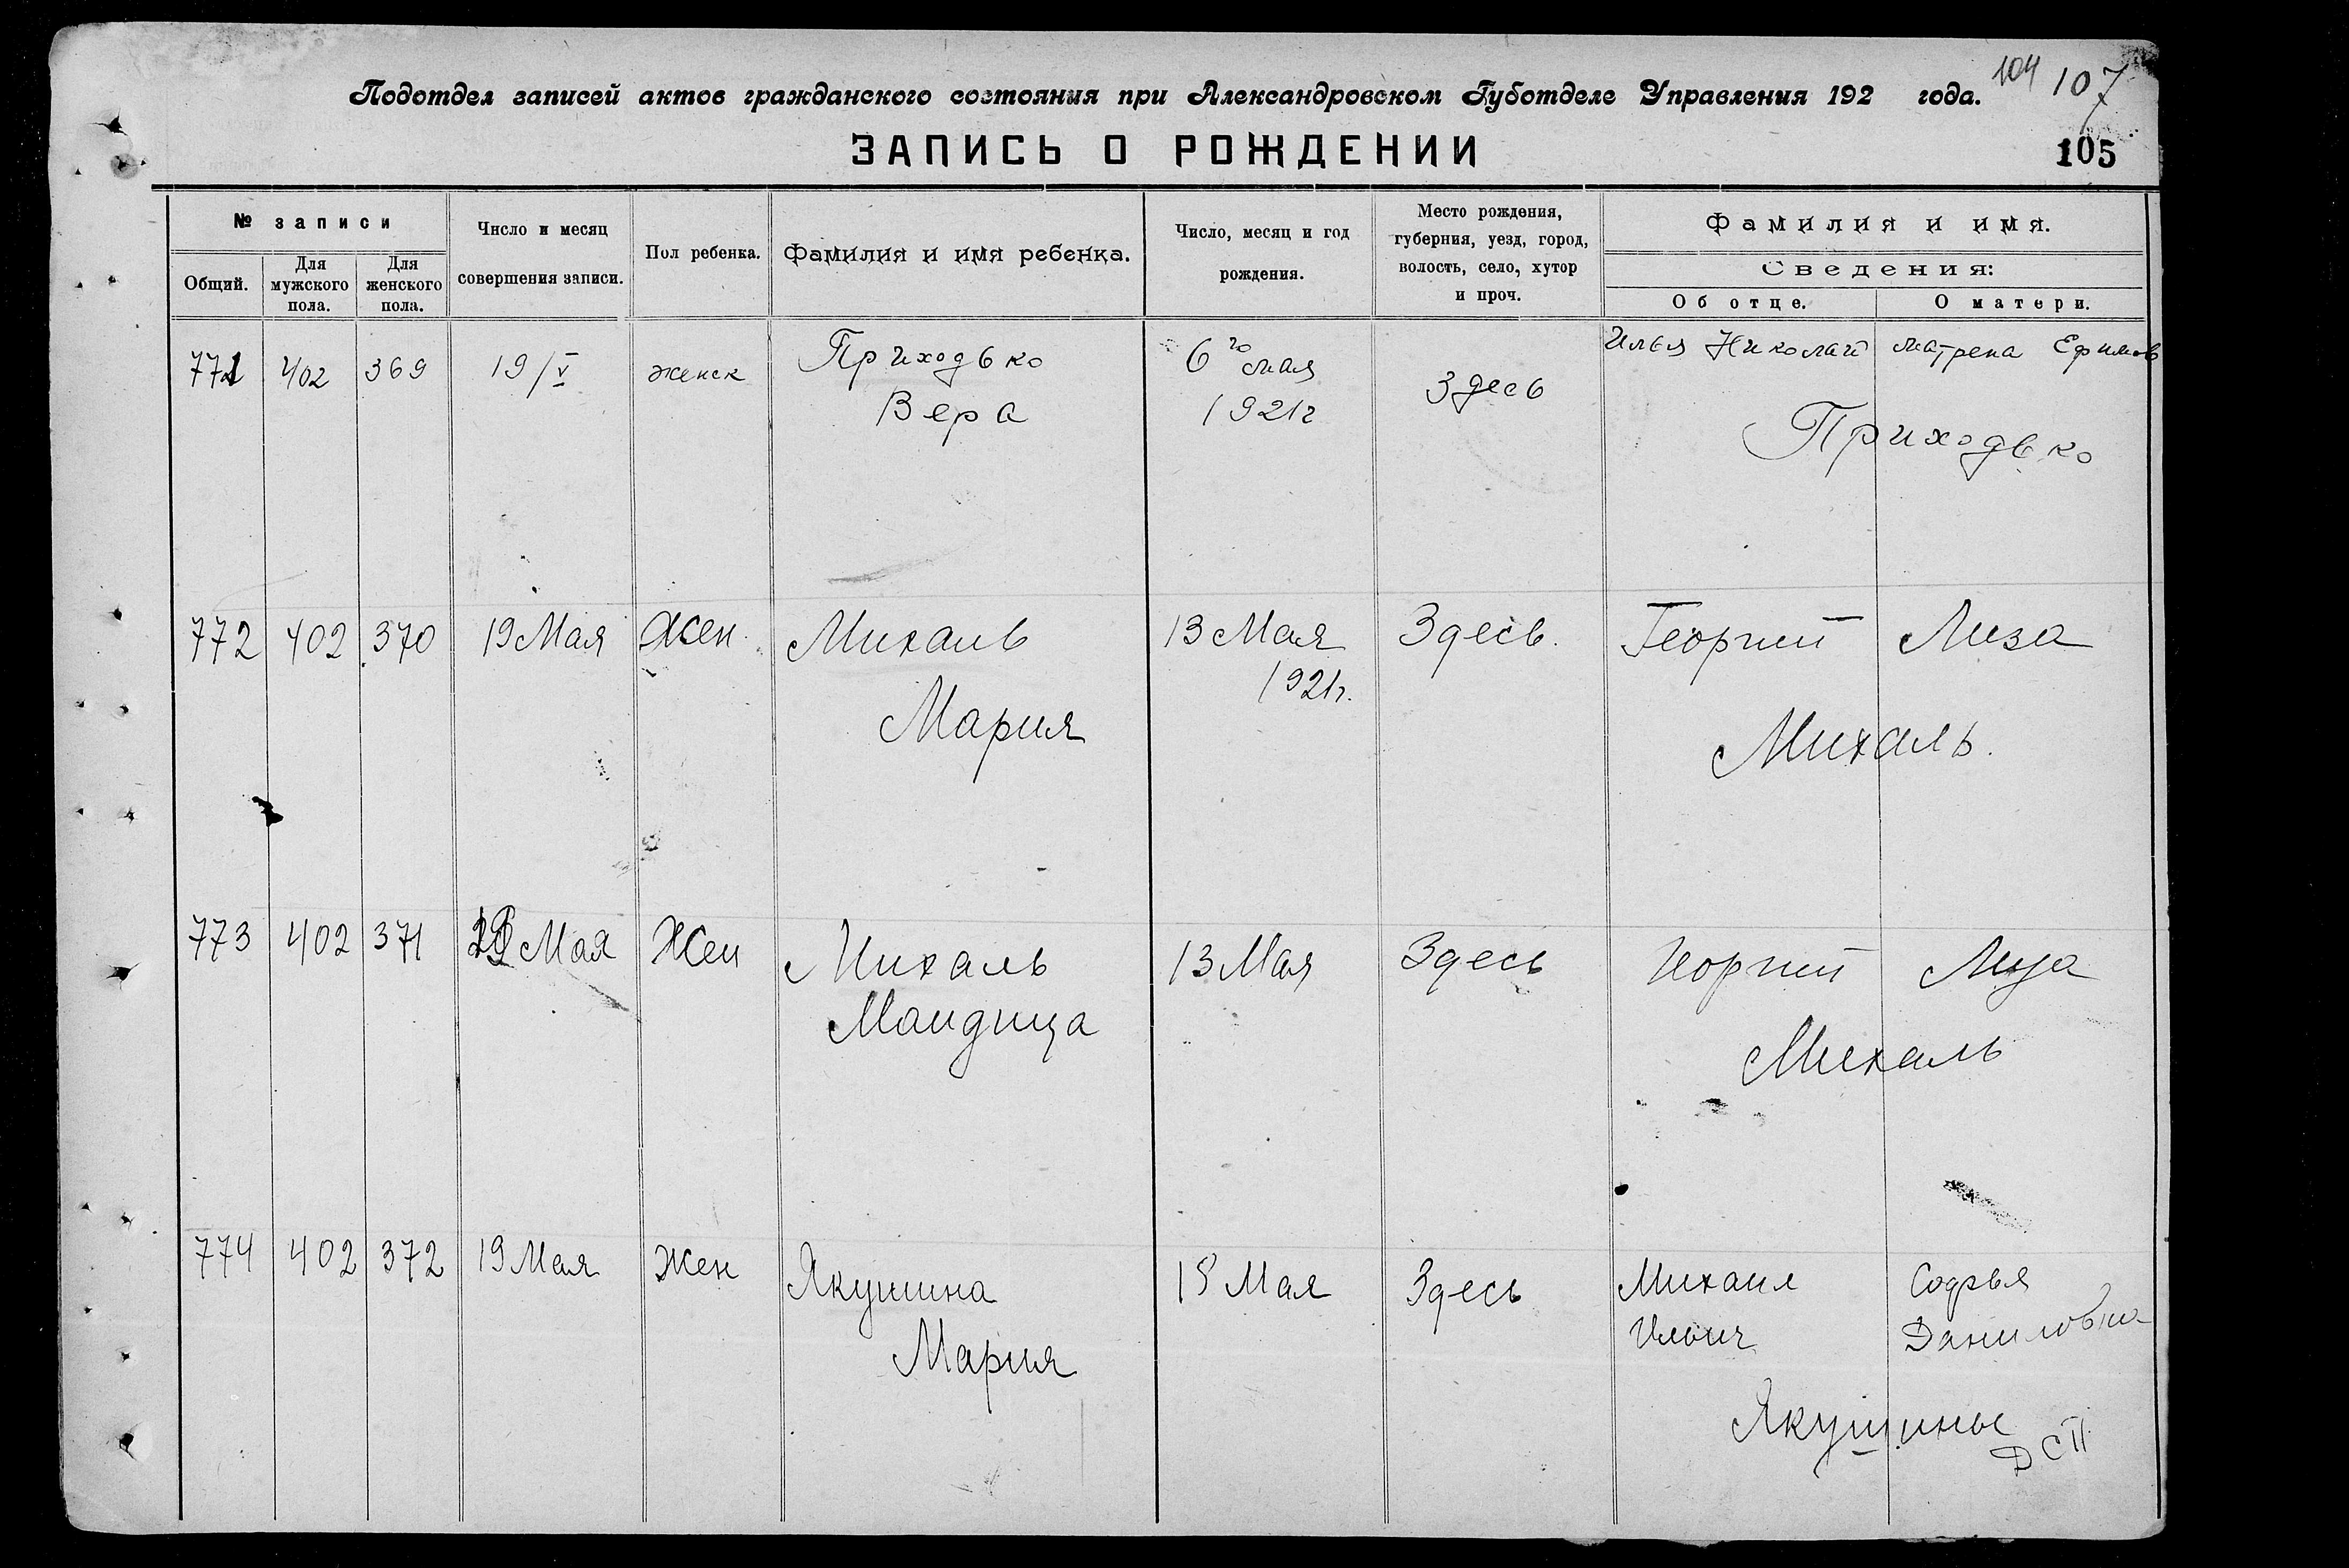 104 107
Подотдел записей актов гражданского состояния при Александровском Губотделе Управления 192 года.
ЗАПИСЬ О РОЖДЕНИИ
105
№ записи
Общий.
Для мужского пола.
Для женского пола.
Число и месяц совершения записи.
Пол ребенка.
Фамилия и имя ребенка.
Число, месяц и год рождения.
Место рождения, губерния, уезд, город, волость, село, хутор и проч.
Фамилия и имя.
Сведения:
Об отце.
О матери.
771 402 369 19/V женск Приходько 6го мая Здесь Илья Николай Матрена Ефимов
Вера 1921г Приходько
772 402 370 19 Мая Жен. Михаль 13 Мая Здесь. Георгий Лиза
1921г.
Мария Михаль.
773 402 371 19 Мая Жен Михаль 13 Мая Здесь Лиза
Михаль
774 402 372 19 Мая Жен Якушина Мая Здесь Михаил Софья
Ильич Даниловна
Мария
Якушины